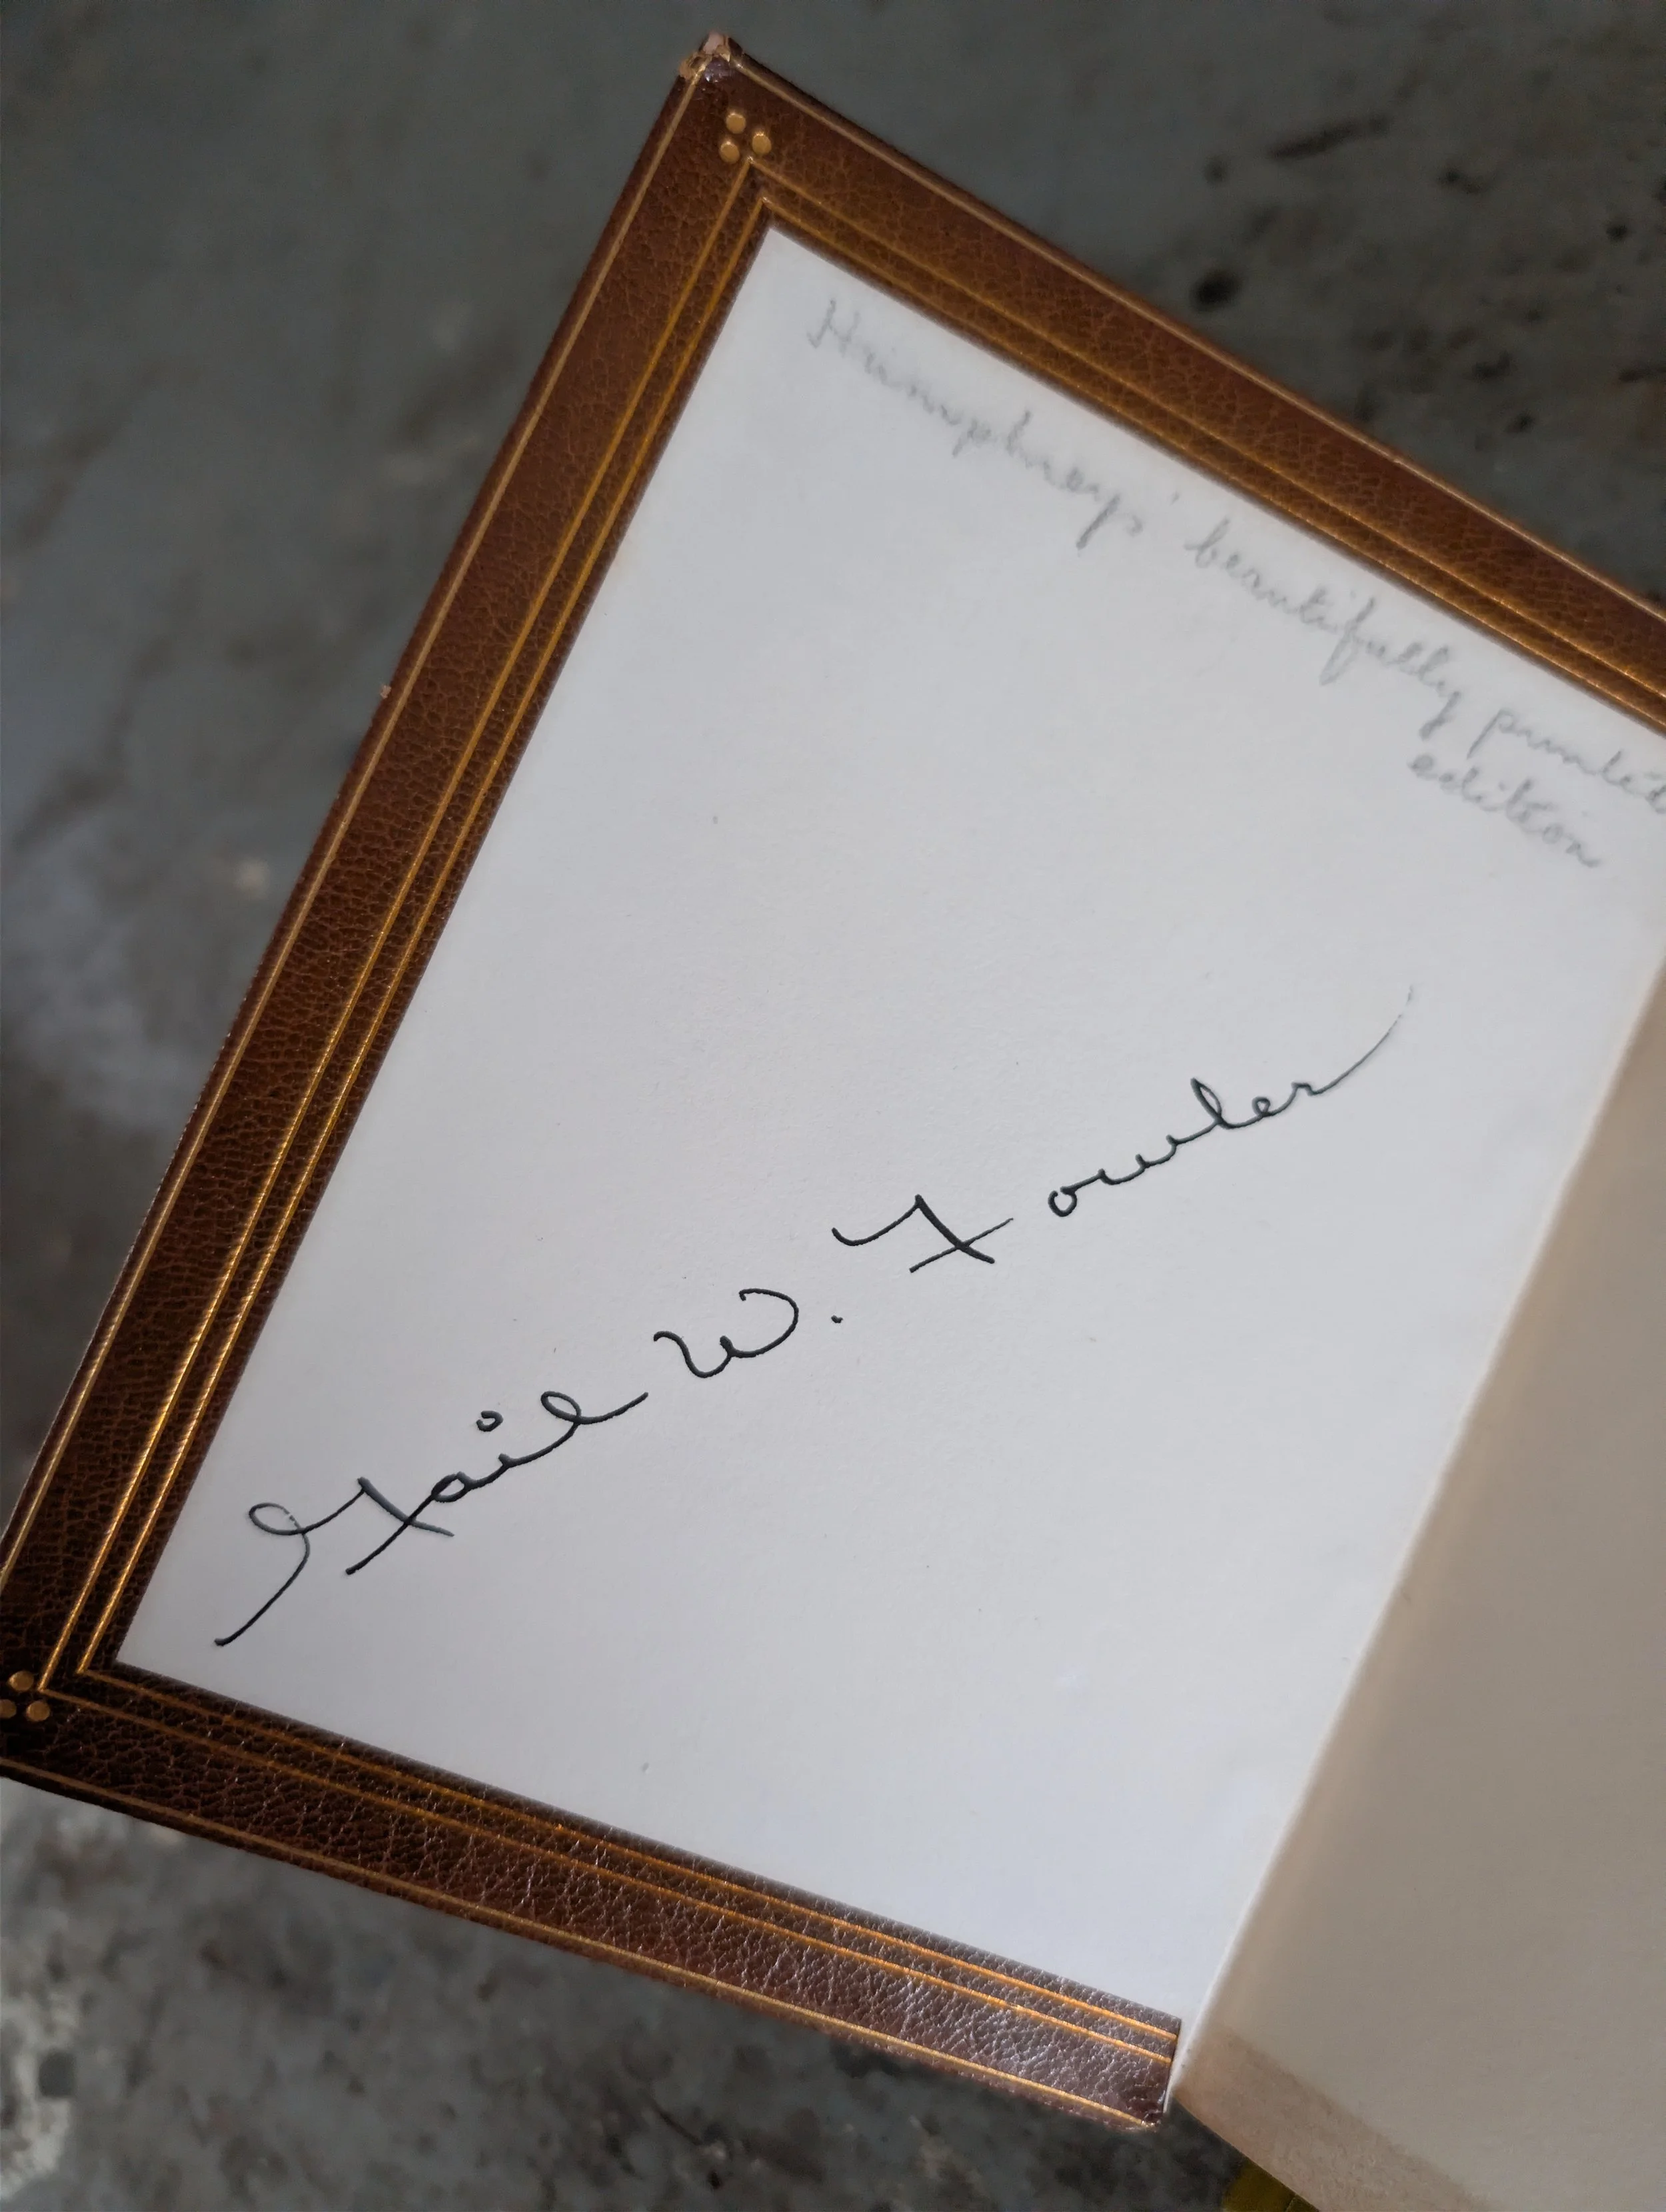 Humphreys' beautifully printed
edition
Gail W. Fowler